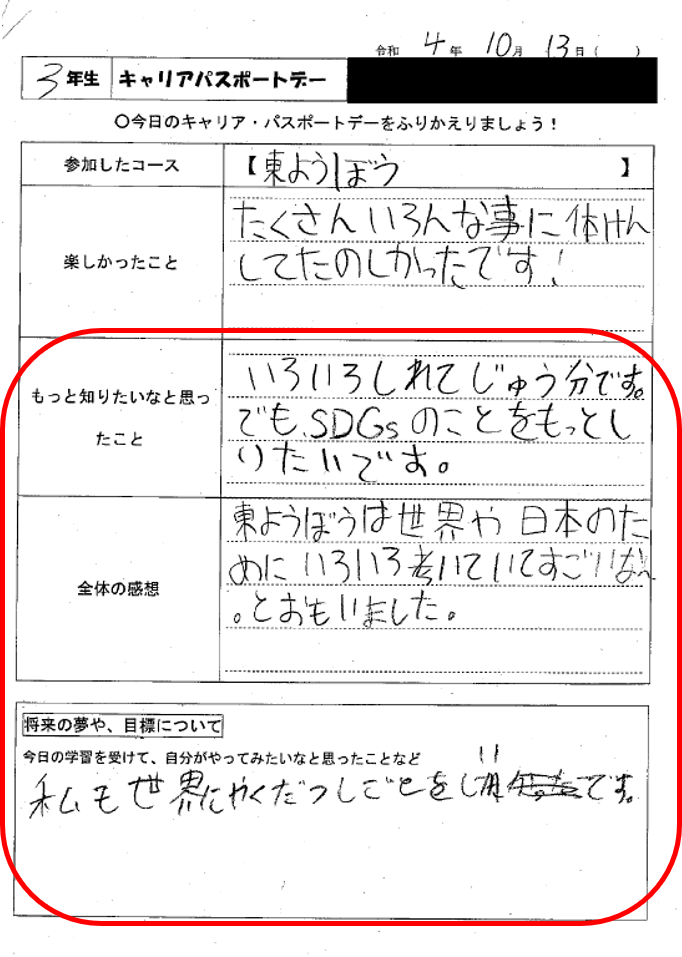 令和 4 年 10 月 13 日 ( )
3 年生 キャリアパスポートデー
〇今日のキャリア・パスポートデーをふりかえりましょう!
参加したコース 【東ようぼう 】
楽しかったこと
たくさんいろんな事に体けん
してたのしかったです!
もっと知りたいなと思っ
たこと
いろいろしれてじゅう分です。
でも、SDGsのことをもっとし
りたいです。
全体の感想
東ようぼうは世界や日本のた
めにいろいろ考いていてすごいなぁ
。とおもいました。
将来の夢や、目標について
今日の学習を受けて、自分がやってみたいなと思ったことなど
私も世界にやくだつしごとをし
です。